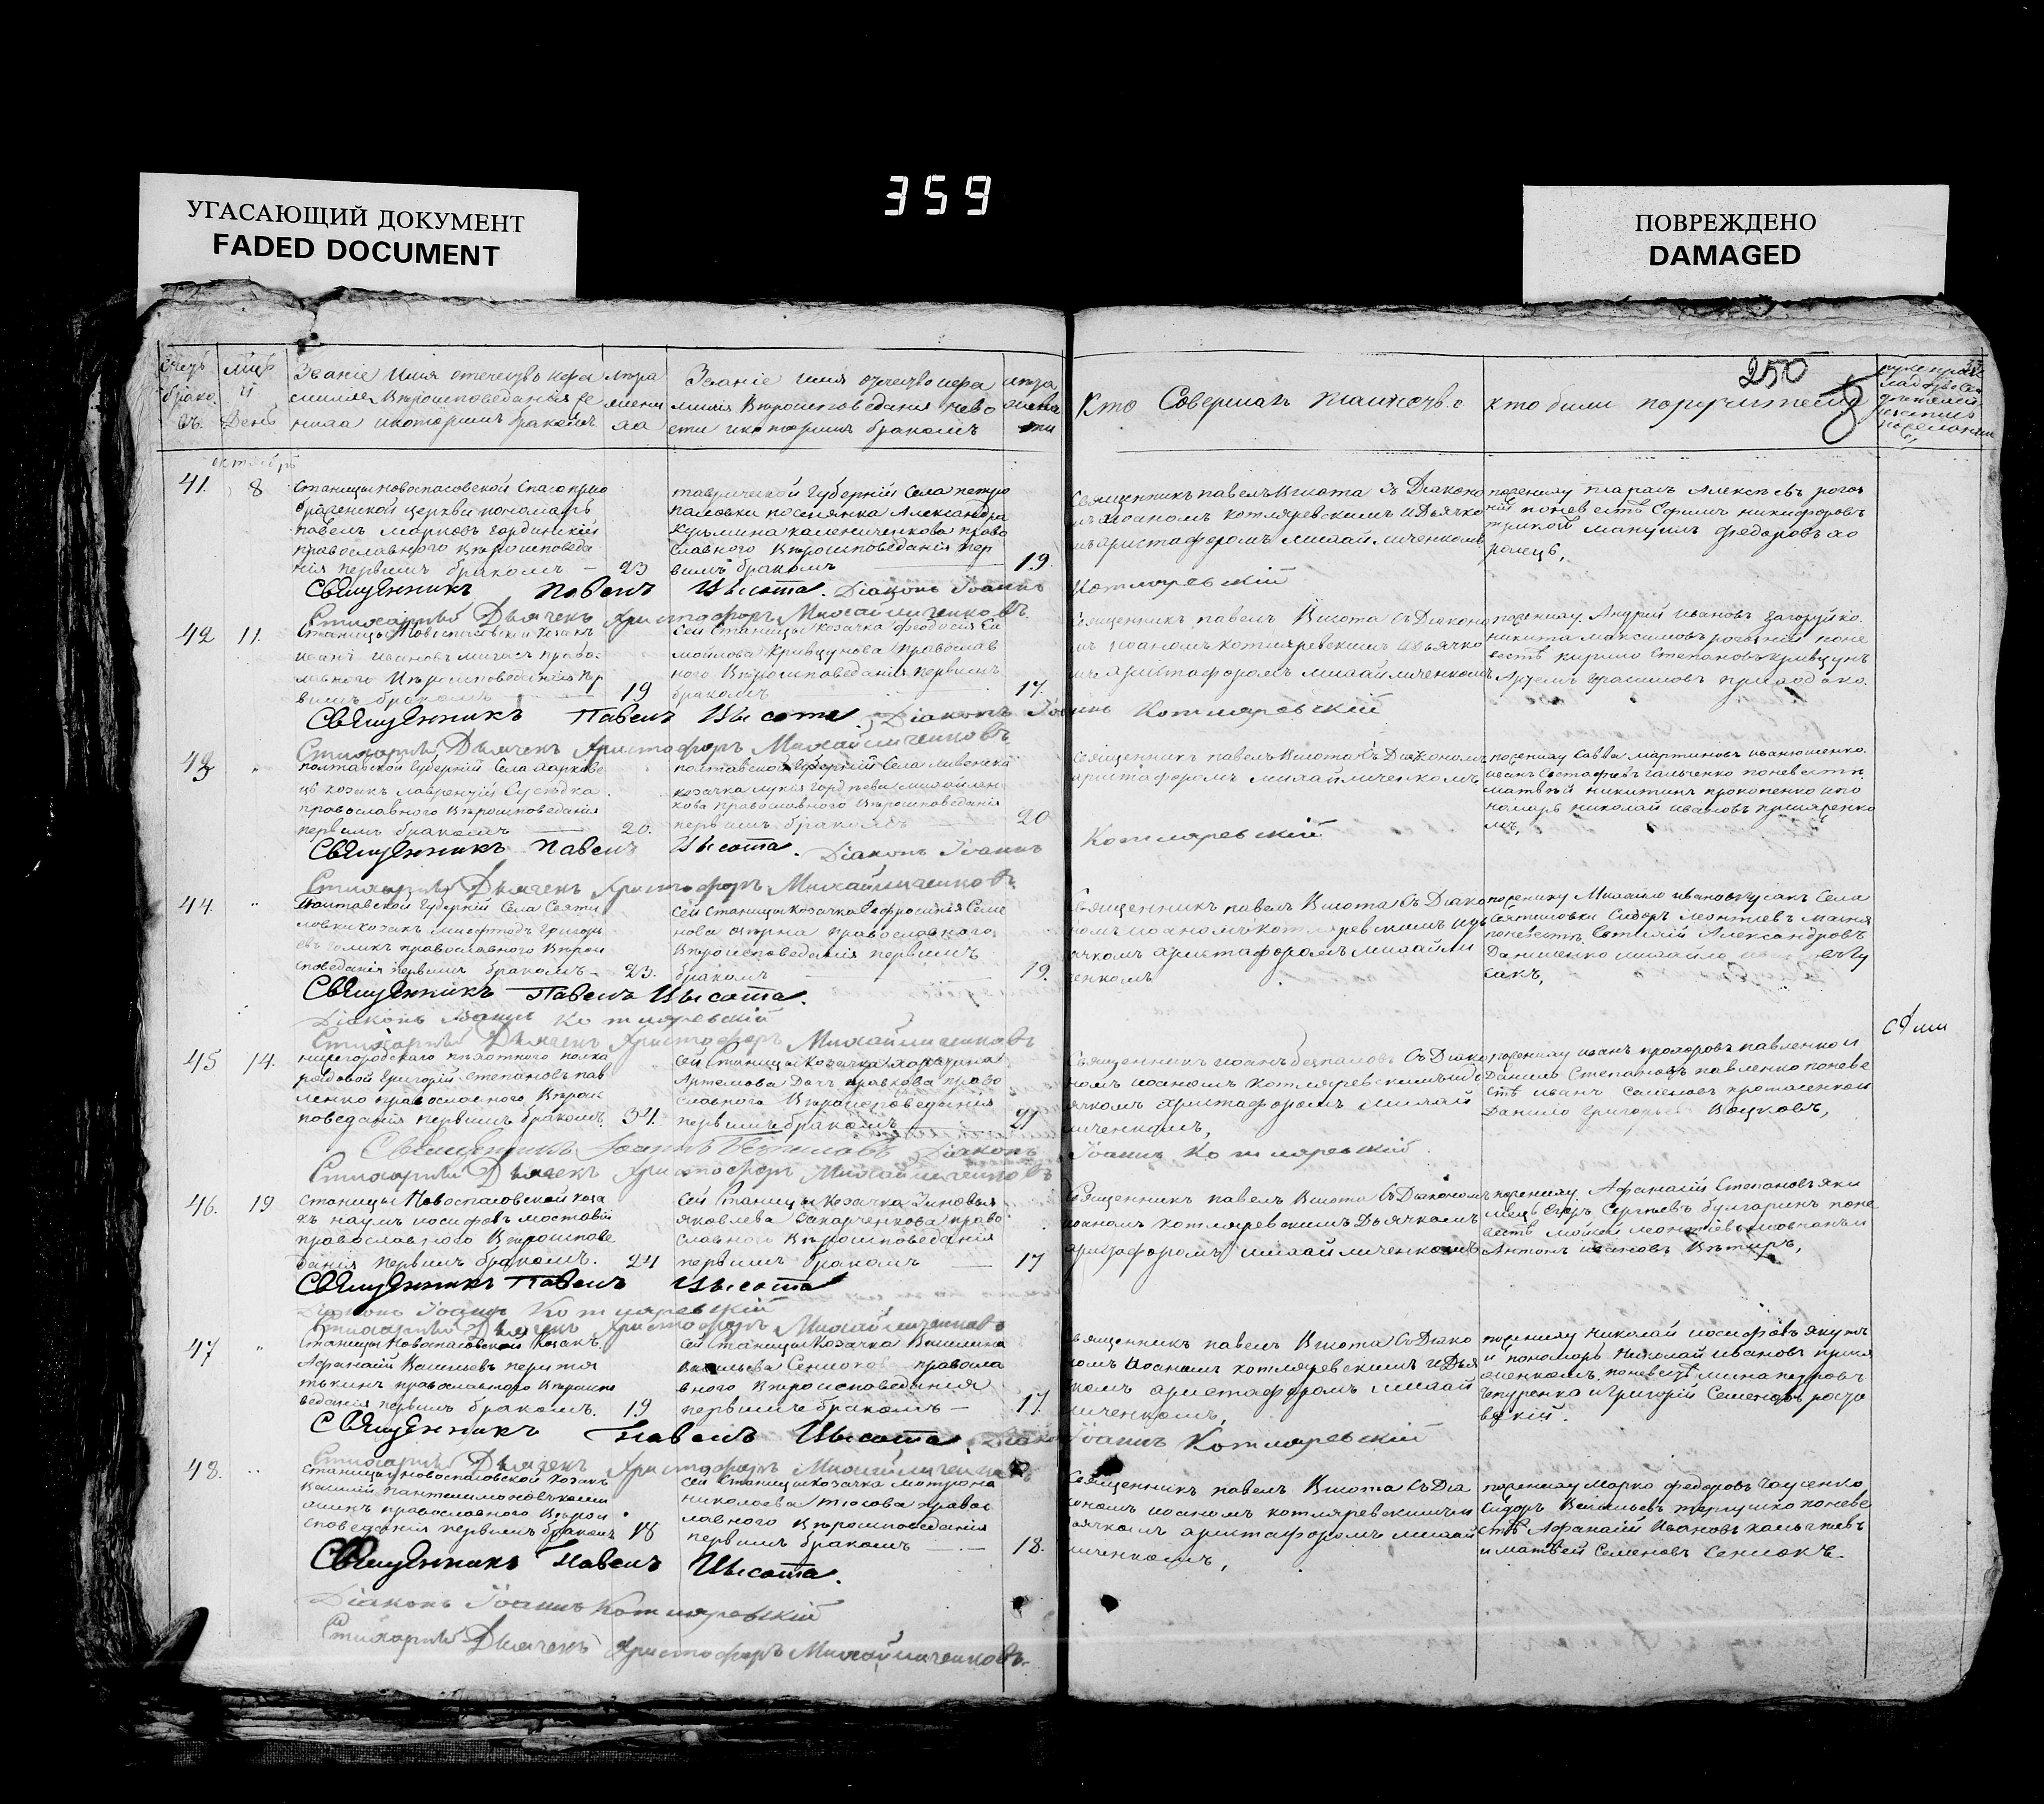 359
УГАСАЮЩИЙ ДОКУМЕНТ
FADED DOCUMENT
ПОВРЕЖДЕНО
DAMAGED
250
Званіе Имя отечество иφа
милія Вѣроисповеданія же
ниха икоторимъ бракомъ
лѣта
жени
ха
Званіе имя отечество иφа
милія Вѣроисповеданія неве
сти икоторимъ бракомъ
лѣта
Кто Совершалъ таинство
кто били поручители
день
октябрь
41. 8
Станицы Новоспасовской Спасопрео
браженской церкви пономарь
павелъ Марковъ гординскій
православного вѣроисповеда
нія первимъ бракомъ — 23
таврической губерніи Села петро
павловки поселянка Александра
Кузьмина калениченкова право
славного вѣроисповеданія пер
вимъ бракомъ 19.
Священникъ павелъ Висота Зъ Діаконо
мъ иоаномъ котляревскимъ идьячко
мъ христафоромъ михайличенкомъ
пожениху тарасъ Алексѣевъ рогоз
ній поневестѣ Ефимъ никифоровъ
мануилъ федоровъ хо
Священникъ Павелъ Высота. Діаконъ Іоаннъ Котляревскій
Стихарный Дьячекъ Христофоръ Михайличенковъ.
42 11.
Станицы Новоспасовской козакъ
иванъ ивановъ право
славного Вѣроисповеданія пер
вимъ бракомъ 19
Сей Станицы козачка феодосія Са
мойлова Кривцунова православ
ного Вѣроисповеданія первимъ
бракомъ 17.
Священникъ павелъ Висота Съ Діаконо
мъ иоаномъ котляревскимъ идьячко
мъ христафоромъ михайличенкомъ
пожениху Андрей ивановъ загоруйко.
никита максимовъ рогозній поне
вестѣ кирило Степановъ кривцунъ
Артемъ герасимовъ приходко.
Священникъ Павелъ Высота Діаконъ Іоаннъ Котляревскій
Стихарный Дьячекъ Христофоръ Михайличенковъ
43 "
полтавской губерніи Села
козакъ лаврентій Сусѣдка
православного Вѣроисповеданія
первимъ бракомъ — 20.
полтавской губерніи Села
козачка лукія гордѣева михайлен
кова православного вѣроисповеданія
первимъ бракомъ 20
Священникъ павелъ Висота Съ Діакономъ
христафоромъ михайличенкомъ
пожениху Савва мартиновъ иванюшенко.
иванъ Евстафіевъ гальченко поневестѣ
матвѣй никитинъ прокопенко ипо
номарь николай ивановъ
Священникъ Павелъ Высота. Діаконъ Іоаннъ Котляревскій
Стихарный Дьячекъ Христофоръ Михайличенковъ.
44. "
Полтавской губерніи Села Святи
ловки козакъ григорі
евъ голикъ православного Вѣрои
споведанія первимъ бракомъ — 23.
Сей Станицы козачка Ефросинья Семе
нова православного
Вѣроисповеданія первимъ
бракомъ 19.
Священникъ павелъ Висота Съ Діако
номъ иоаномъ котляревскимъ идь
ячкомъ христафоромъ михайли
ченкомъ
пожениху Михайло ивановъ гусакъ Села
Святиловки Сидоръ леонтіевъ
поневестѣ Александровъ
Даниленко михайло
Священникъ Павелъ Высота.
Діаконъ Іоаннъ Котляревскій
Стихарный Дьячекъ Христофоръ Михайличенковъ
45 14.
нижегородскаго пѣхотного полка
рядовой Григорій Степановъ пав
ленко православного Вѣроис
поведанія первимъ бракомъ. 34.
Сей Станицы Козачка
Артемова право
славного Вѣроисповеданія
первимъ бракомъ 21
Священникъ иоанъ Съ Діако
номъ иоаномъ котляревскимъ идь
ячкомъ христафоромъ михай
личенкомъ,
пожениху иванъ прохоровъ павленко и
Данило Степановъ павленко поневе
стѣ иванъ Семеновъ протасенко и
Данило григорьевъ Воцковъ,
Діаконъ Іоаннъ Котляревскій
Стихарный Дьячекъ Христофоръ Михайличенковъ
46. 19
Станицы Новоспасовской коза
къ наумъ иосифовъ мостовій
православного Вѣроиспове
данія первимъ бракомъ. 24
Сей Станицы Козачка Зиновья
яковлева право
славного Вѣроисповеданія
первимъ бракомъ 17
Священникъ павелъ Висота Съ Діакономъ
иоаномъ котляревскимъ Дьячкомъ
христафоромъ михайличенкомъ
пожениху. Афанасій Степановъ яки
мецъ Егоръ Сергѣевъ булгаринъ поне
вестѣ мойсей леонтіевъ мовчанъ и
Антонъ ивановъ
Священникъ Павелъ Высота
Діаконъ Іоаннъ Котляревскій
Стихарный Дьячекъ Христофоръ Михайличенковъ
47 "
Станицы Новоспасовской козакъ.
Афанасій Васильевъ перетя
тькинъ православного Вѣроиспо
веданія первимъ бракомъ. 19
Сей Станицы Козачка
Васильева Сенюкова правосла
вного Вѣроисповеданія
первимъ бракомъ — 17.
Священникъ павелъ Висота Съ Діако
номъ иоаномъ котляревскимъ и Дья
чкомъ христафоромъ михай
личенкомъ,
пожениху николай иосифовъ
и пономарь Николай ивановъ
поневестѣ мина петровъ
и григорій Семеновъ
Священникъ Павелъ Высота. Діаконъ Іоаннъ Котляревскій
Стихарный Дьячекъ Христофоръ Михайличенковъ
48. "
Станицы новоспасовской козакъ
Василій пантелимоновъ
православного Вѣрои
споведанія первимъ бракомъ 18
Сей Станицы козачка мотрона
николаева правос
лавного Вѣроисповеданія
первимъ бракомъ — 18.
Священникъ павелъ Висота Съ Діа
кономъ иоаномъ котляревскимъ и
дьячкомъ христафоромъ михай
личенкомъ,
пожениху марко федоровъ
Сидоръ Васильевъ поневе
стѣ Афанасій ивановъ
и матвей Семеновъ Сенюкъ.
Священникъ Павелъ Высота.
Діаконъ Іоаннъ Котляревскій
Стихарный Дьячекъ Христофоръ Михайличенковъ.